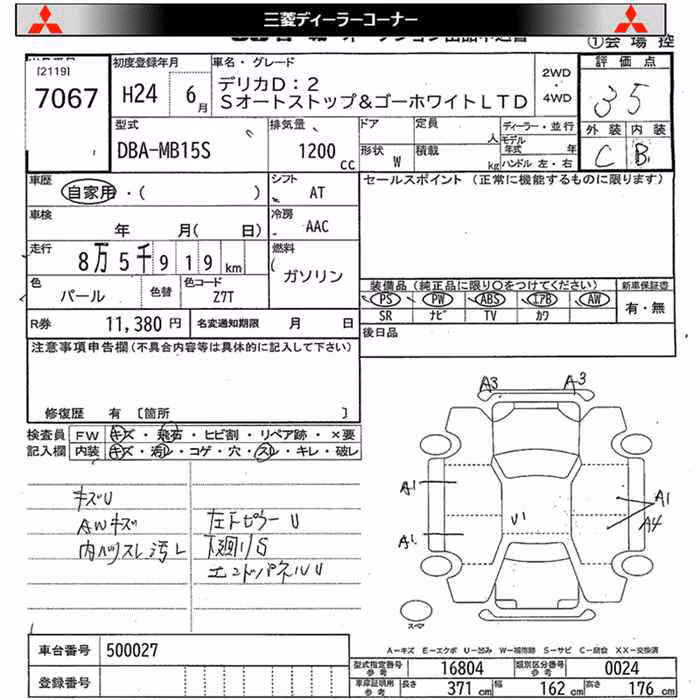 三菱ディーラーコーナー
①会場控
[2119]
7067
初度登録年月
H24 6月
車名・グレード
デリカD:2
Sオートストップ&ゴーホワイトLTD
2WD
・
4WD
評価点
3.5
外装 内装
C B
型式
DBA-MB15S
排気量
1200 cc
ドア
形状 W
定員 人
積載 kg
ディーラー・並行
モデル年式 年
ハンドル 左・右
車歴
自家用・( )
シフト
AT
車検
年 月( 日)
冷房
AAC
走行
8万5千919km
燃料
ガソリン
色
パール
色替
色コード
Z7T
R券 11,380円
名変通知期限 月 日
セールスポイント (正常に機能するものに限ります)
装備品(純正品に限り○をつけてください)
新車保証書
PS PW ABS エアB AW
有・無
SR ナビ TV カワ
後日品
注意事項申告欄(不具合内容等は具体的に記入して下さい)
修復歴 有 [箇所 ]
検査員 FW キズ・飛石・ヒビ割・リペア跡・×要
記入欄 内装 キズ・汚レ・コゲ・穴・スレ・キレ・破レ
キズU
AWキズ
内ハゲスレ汚レ
左下ピラーU
下廻りS
エンドパネルU
A3 A3
A1
A1
A4
U1
A1
スペア
A-キズ E-エクボ U-凹み W-補修跡 S-サビ C-腐食 XX-交換済
車台番号 500027
登録番号
型式指定番号 参考 16804
類別区分番号 参考 0024
車庫証明用 参考
長さ 371cm
幅 162cm
高さ 176cm